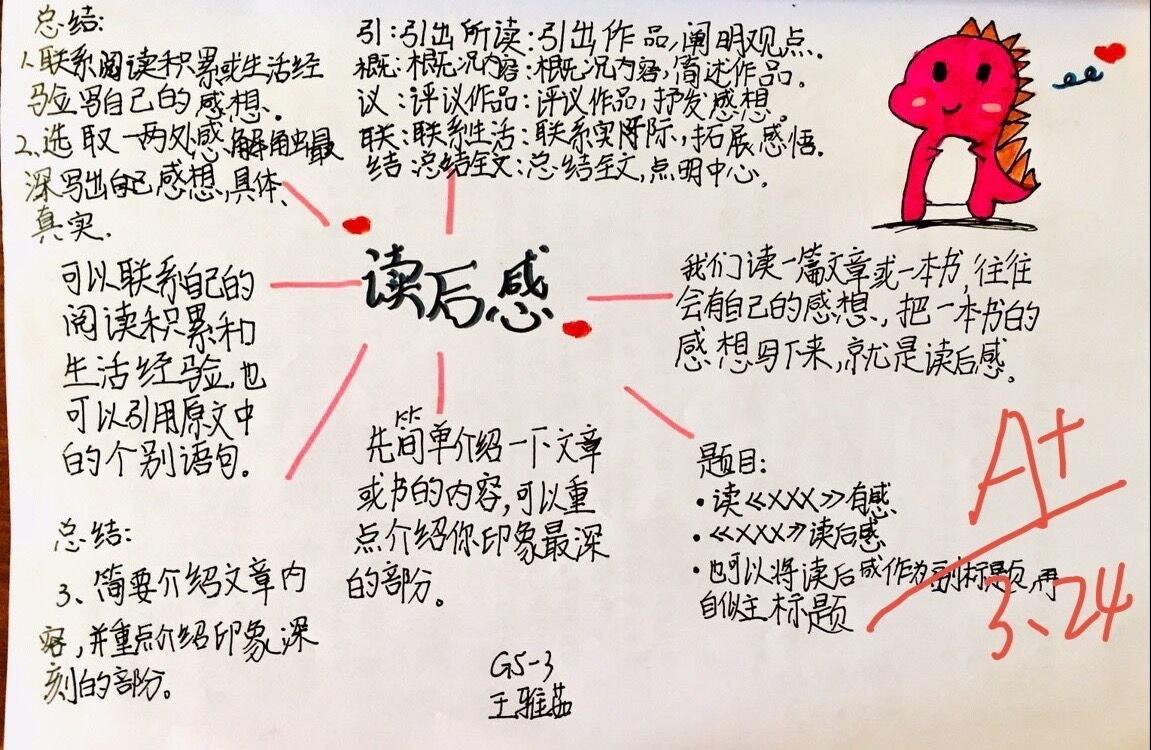 总结:
1、联系阅读积累或生活经
验写自己的感想、
2、选取一两处感解触最
深写出自己感想,具体、
真实.
引:引出所读:引出作品,阐明观点。
概:概况内容:概况内容,简述作品。
议:评议作品:评议作品,抒发感想。
联:联系生活:联系实际,拓展感悟.
结:总结全文:总结全文,点明中心。
读后感
可以联系自己的
阅读积累和
生活经验,也
可以引用原文中
的个别语句。
我们读一篇文章或一本书,往往
会有自己的感想,把一本书的
感想写下来,就是读后感。
先简单介绍一下文章
或书的内容,可以重
点介绍你印象最深
的部分。
题目:
·读《XXX》有感
·《XXX》读后感
·也可以将读后感作为副标题,再
自似主标题
总结:
3、简要介绍文章内
容,并重点介绍印象深
刻的部分。
G5-3
王雅茹
A+
3、24